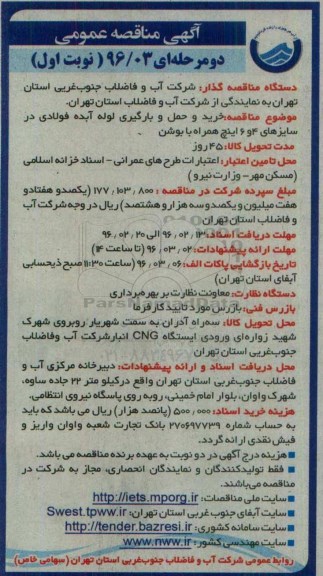 آگهی مناقصه عمومی
دو مرحله‌ای ۹۶/۰۳ ( نوبت اول)
دستگاه مناقصه گذار: شرکت آب و فاضلاب جنوب‌غربی استان
تهران به نمایندگی از شرکت آب و فاضلاب استان تهران.
موضوع مناقصه: خرید و حمل و بارگیری لوله آبده فولادی در
سایزهای ۴ و ۶ اینچ همراه با بوشن
مدت تحویل کالا: ۴۵ روز
محل تامین اعتبار: اعتبارات طرح های عمرانی - اسناد خزانه اسلامی
(مسکن مهر- وزارت نیرو)
مبلغ سپرده شرکت در مناقصه : ۱۷۷,۱۰۳,۸۰۰ (یکصدو هفتادو
هفت میلیون و یکصدو سه هزار و هشتصد) ریال در وجه شرکت آب
و فاضلاب استان تهران
مهلت دریافت اسناد: ۹۶,۰۲,۱۳ الی ۹۶,۰۲,۲۰
مهلت ارائه پیشنهادات: ۹۶,۰۳,۰۲ (تا ساعت ۱۴)
تاریخ بازگشایی پاکات الف: ۹۶,۰۳,۰۶ (ساعت ۱۱:۳۰ صبح ذیحسابی
آبفای استان تهران)
دستگاه نظارت: معاونت نظارت بر بهره‌برداری
بازرس فنی: بازرس مورد تایید کارفرما
محل تحویل کالا: سه‌راه آدران به سمت شهریار روبروی شهرک
شهید زواره‌ای ورودی ایستگاه CNG انبار شرکت آب و فاضلاب
جنوب‌غربی استان تهران
محل دریافت اسناد و ارائه پیشنهادات: دبیرخانه مرکزی آب و
فاضلاب جنوب‌غربی استان تهران واقع در کیلو متر ۲۲ جاده ساوه،
شهرک واوان، بلوار امام خمینی، روبه روی پاسگاه نیروی انتظامی.
هزینه خرید اسناد: ۵۰۰,۰۰۰ (پانصد هزار) ریال می باشد که باید
به حساب شماره ۲۷۰۶۹۷۷۳۹ بانک تجارت شعبه واوان واریز و
فیش نقدی ارائه گردد.
هزینه درج آگهی در دو نوبت به عهده برنده مناقصه می باشد.
فقط تولیدکنندگان و نمایندگان انحصاری، مجاز به شرکت در
مناقصه می‌باشند.
سایت ملی مناقصات: http://iets.mporg.ir
سایت آبفای جنوب غربی استان تهران: Swest.tpww.ir
سایت سامانه کشوری: http://tender.bazresi.ir
سایت مهندسی کشور: www.nww.ir
روابط عمومی شرکت آب و فاضلاب جنوب‌غربی استان تهران (سهامی خاص)